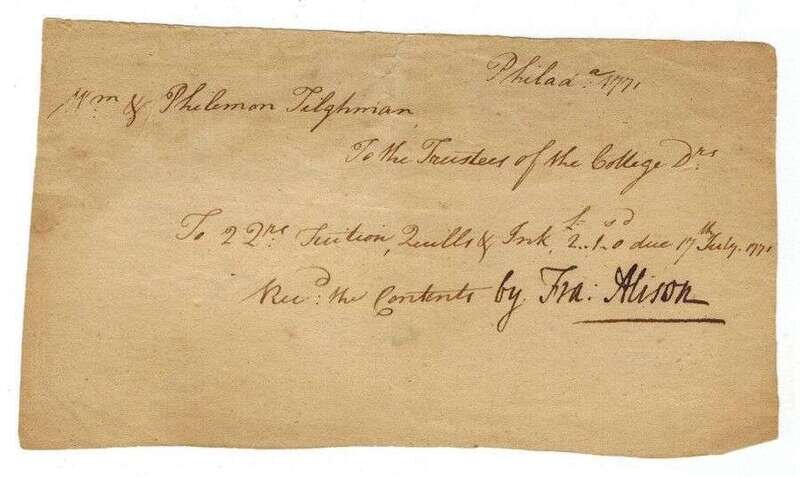 Philad.a 1771
Wm & Philemon Tilghman
To the Trustees of the College Drs
To 2 Qrs Tuition, Quills & Ink, £2..s1..d0 due 17th July. 1771
Recd: the Contents by Fra: Alison